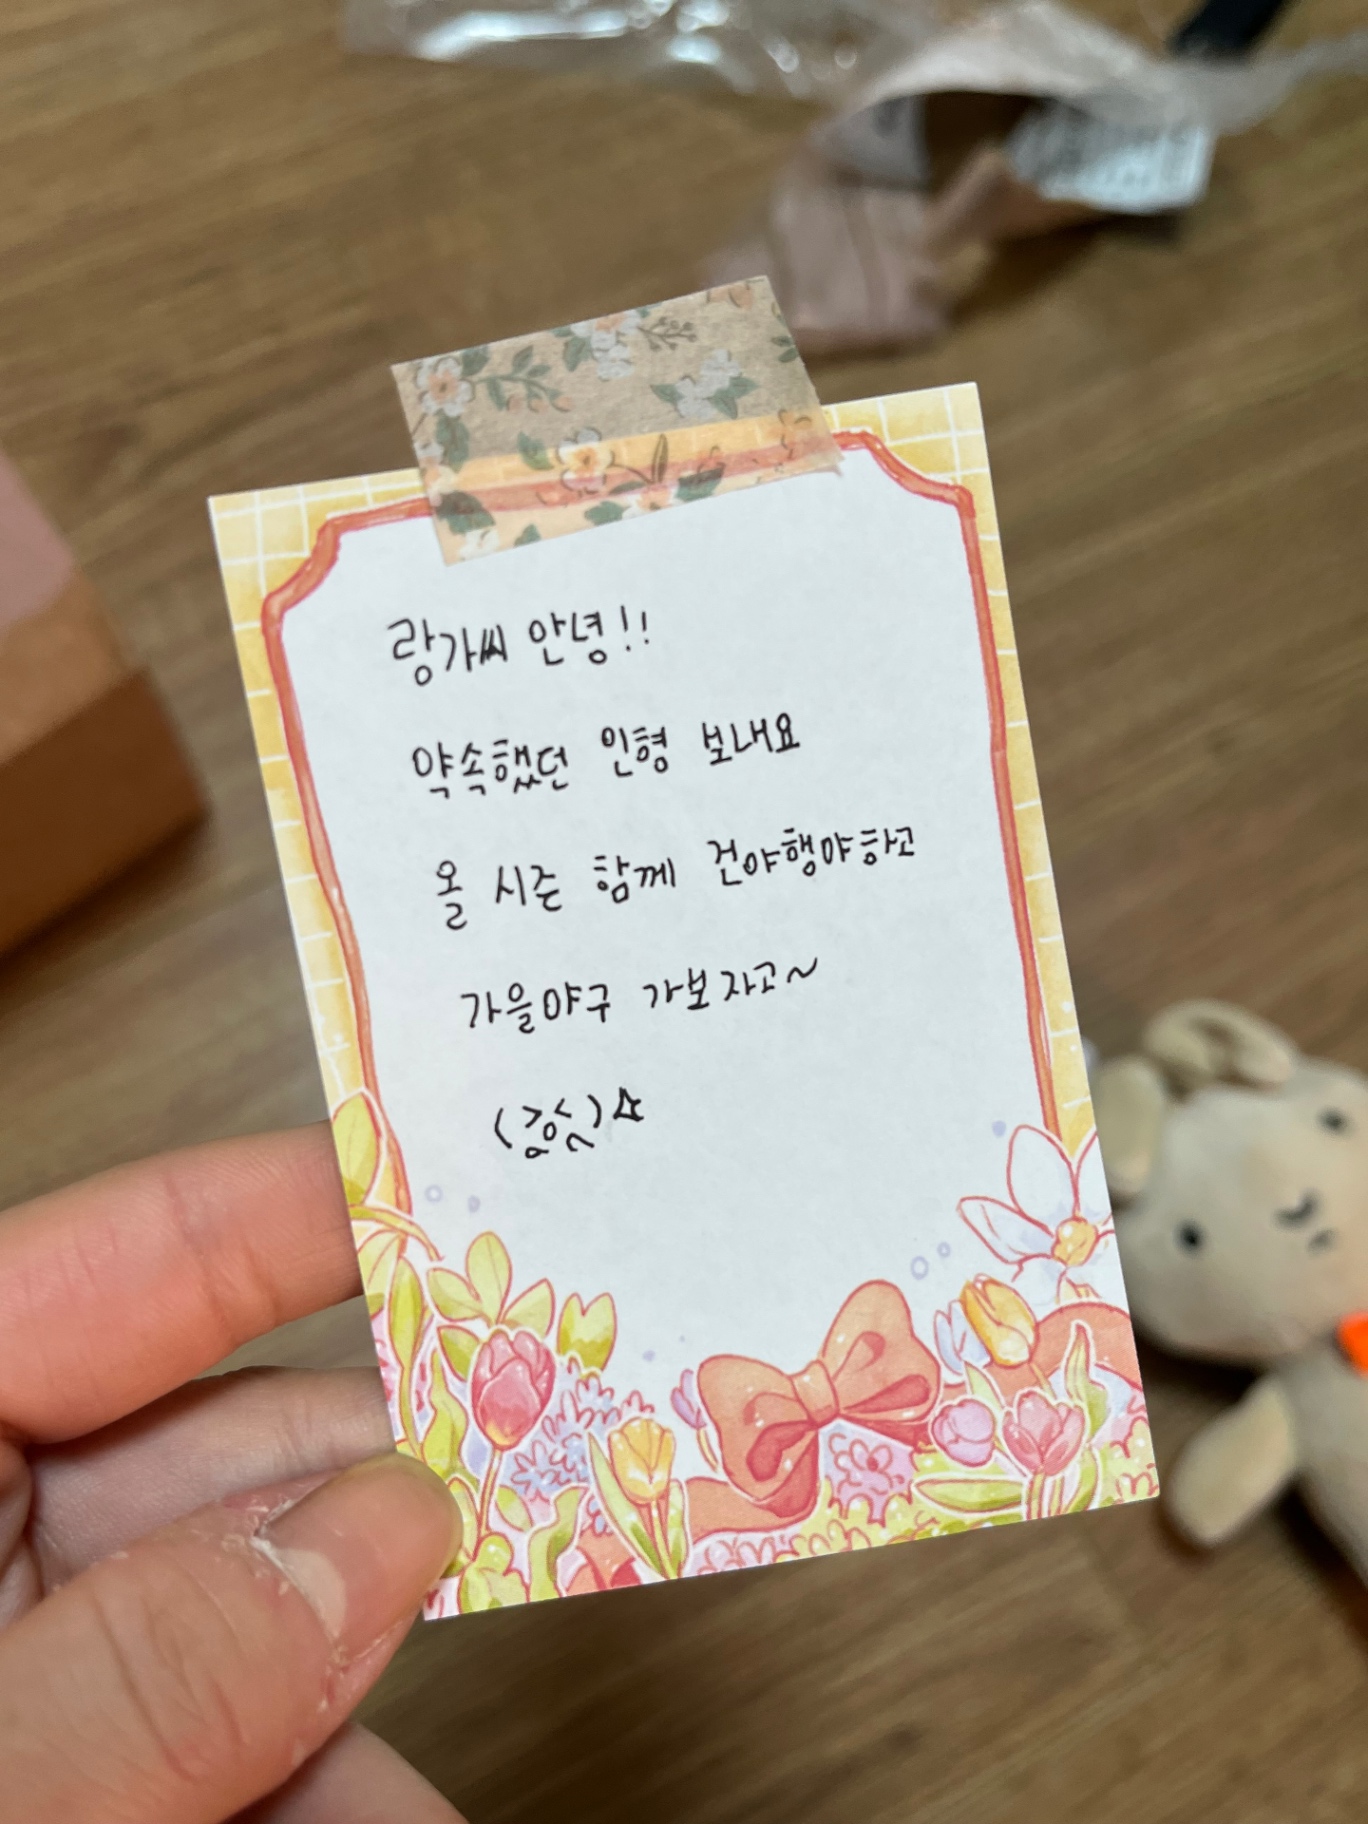 랑가씨 안녕!!
약속했던 인형 보내요
올 시즌 함께 건야행야하고
가을야구 가보자고~